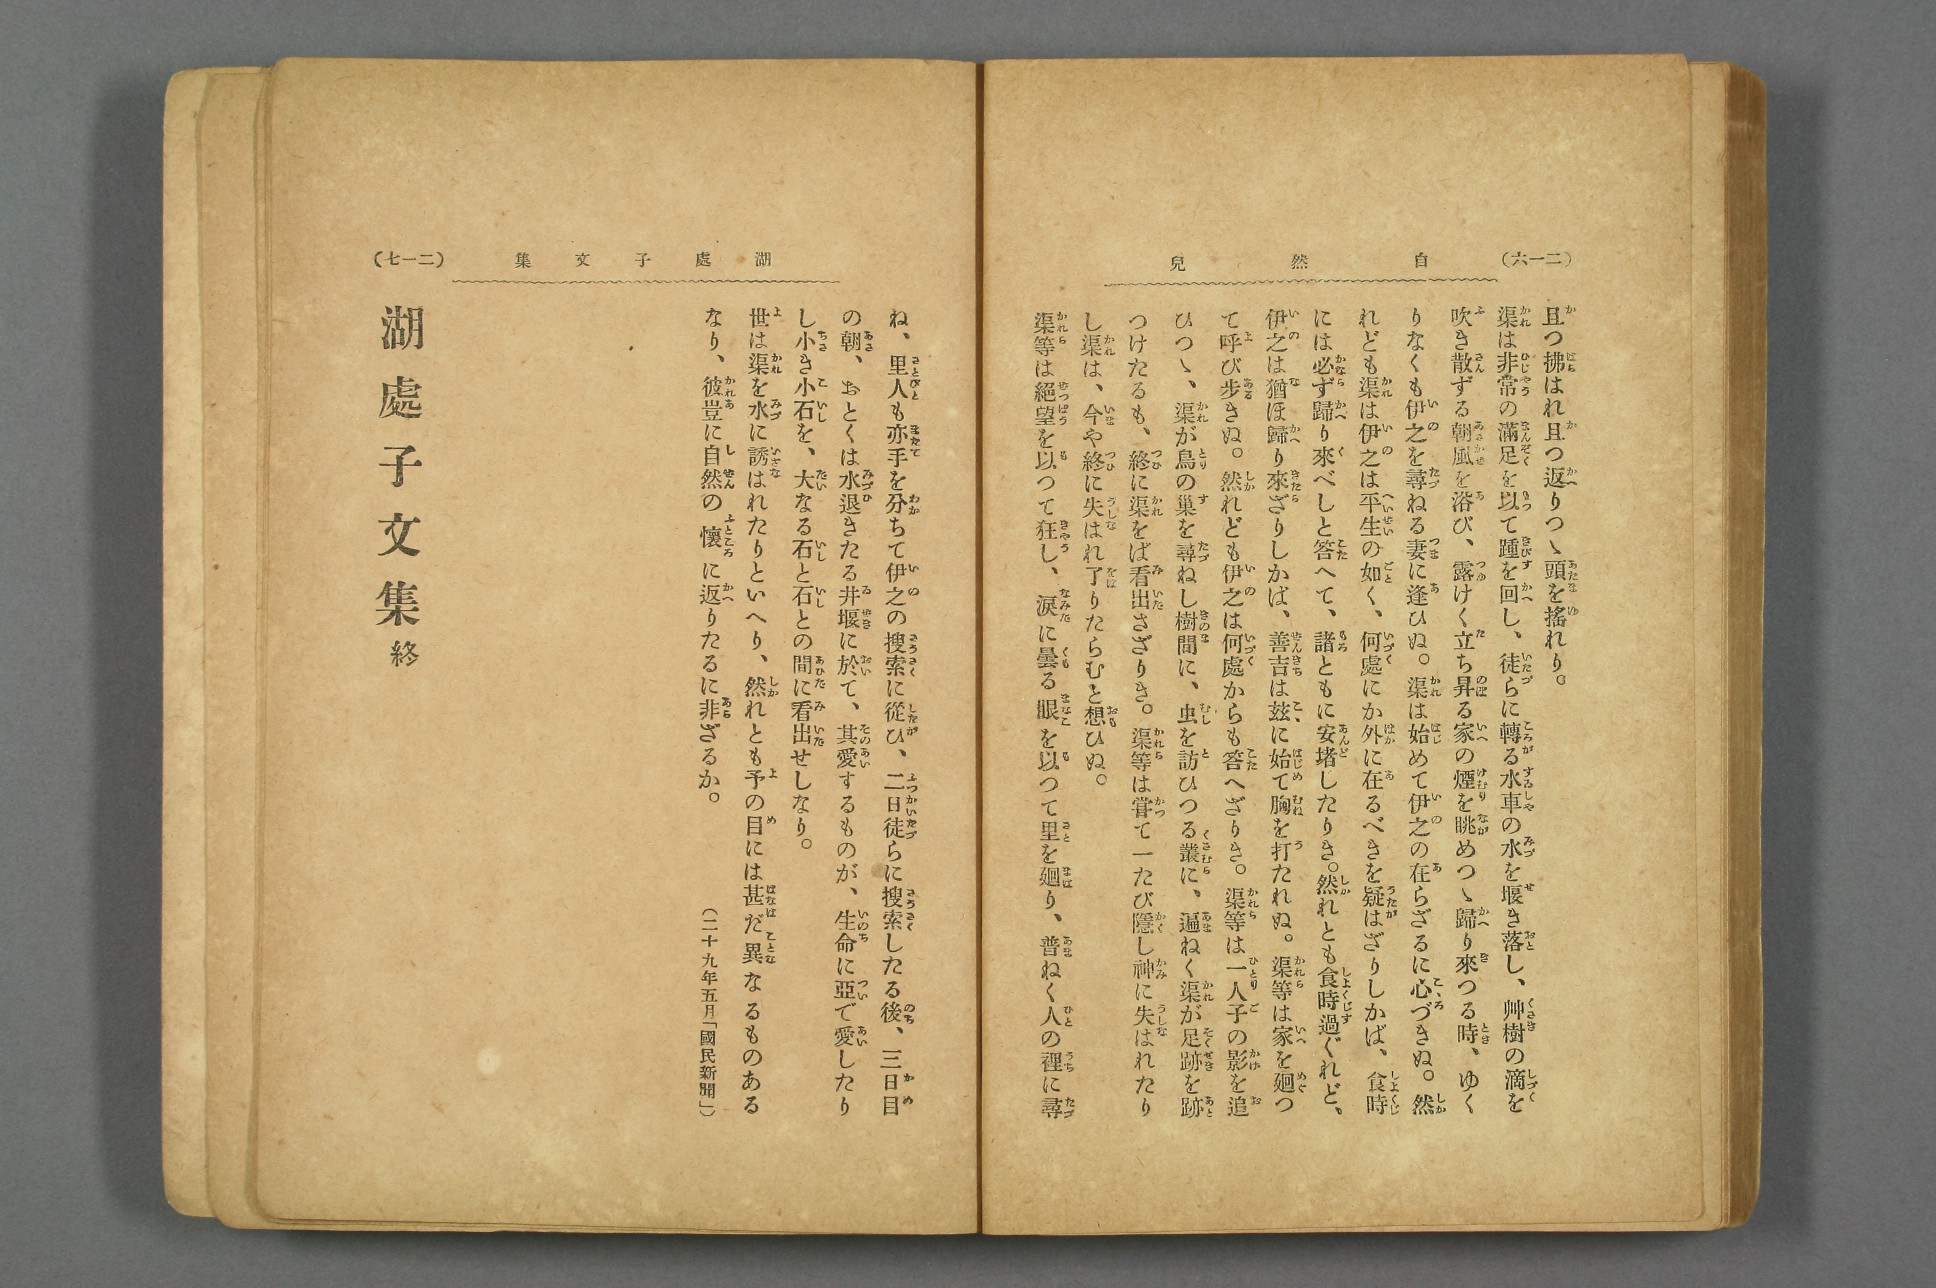 (二一六)
自然兒
且つ拂はれ且つ返りつゝ頭を搖れり。
渠は非常の滿足を以て踵を回し、徒らに轉る水車の水を堰き落し、艸樹の滴を
吹き散ずる朝風を浴び、露けく立ち昇る家の煙を眺めつゝ歸り來つる時、ゆく
りなくも伊之を尋ねる妻に逢ひぬ。渠は始めて伊之の在らざるに心づきぬ。然
れども渠は伊之は平生の如く、何處にか外に在るべきを疑はざりしかば、食時
には必ず歸り來べしと答へて、諸ともに安堵したりき。然れとも食時過ぐれど、
伊之は猶ほ歸り來ざりしかば、善吉は玆に始て胸を打たれぬ。渠等は家を廻つ
て呼び歩きぬ。然れども伊之は何處からも答へざりき。渠等は一人子の影を追
ひつゝ、渠が鳥の巢を尋ねし樹間に、虫を訪ひつる叢に、遍ねく渠が足跡を跡
つけたるも、終に渠をば看出さざりき。渠等は甞て一たび隱し神に失はれたり
し渠は、今や終に失はれ了りたらむと想ひぬ。
渠等は絕望を以つて狂し、淚に曇る眼を以つて里を廻り、普ねく人の裡に尋
湖處子文集
(二一七)
ね、里人も亦手を分ちて伊之の搜索に從ひ、二日徒らに搜索したる後、三日目
の朝、おとくは水退きたる井堰に於て、其愛するものが、生命に亞で愛したり
し小き小石を、大なる石と石との間に看出せしなり。
世は渠を水に誘はれたりといへり、然れとも予の目には甚だ異なるものある
なり、彼豈に自然の懷に返りたるに非ざるか。
(二十九年五月「國民新聞」)
湖處子文集終